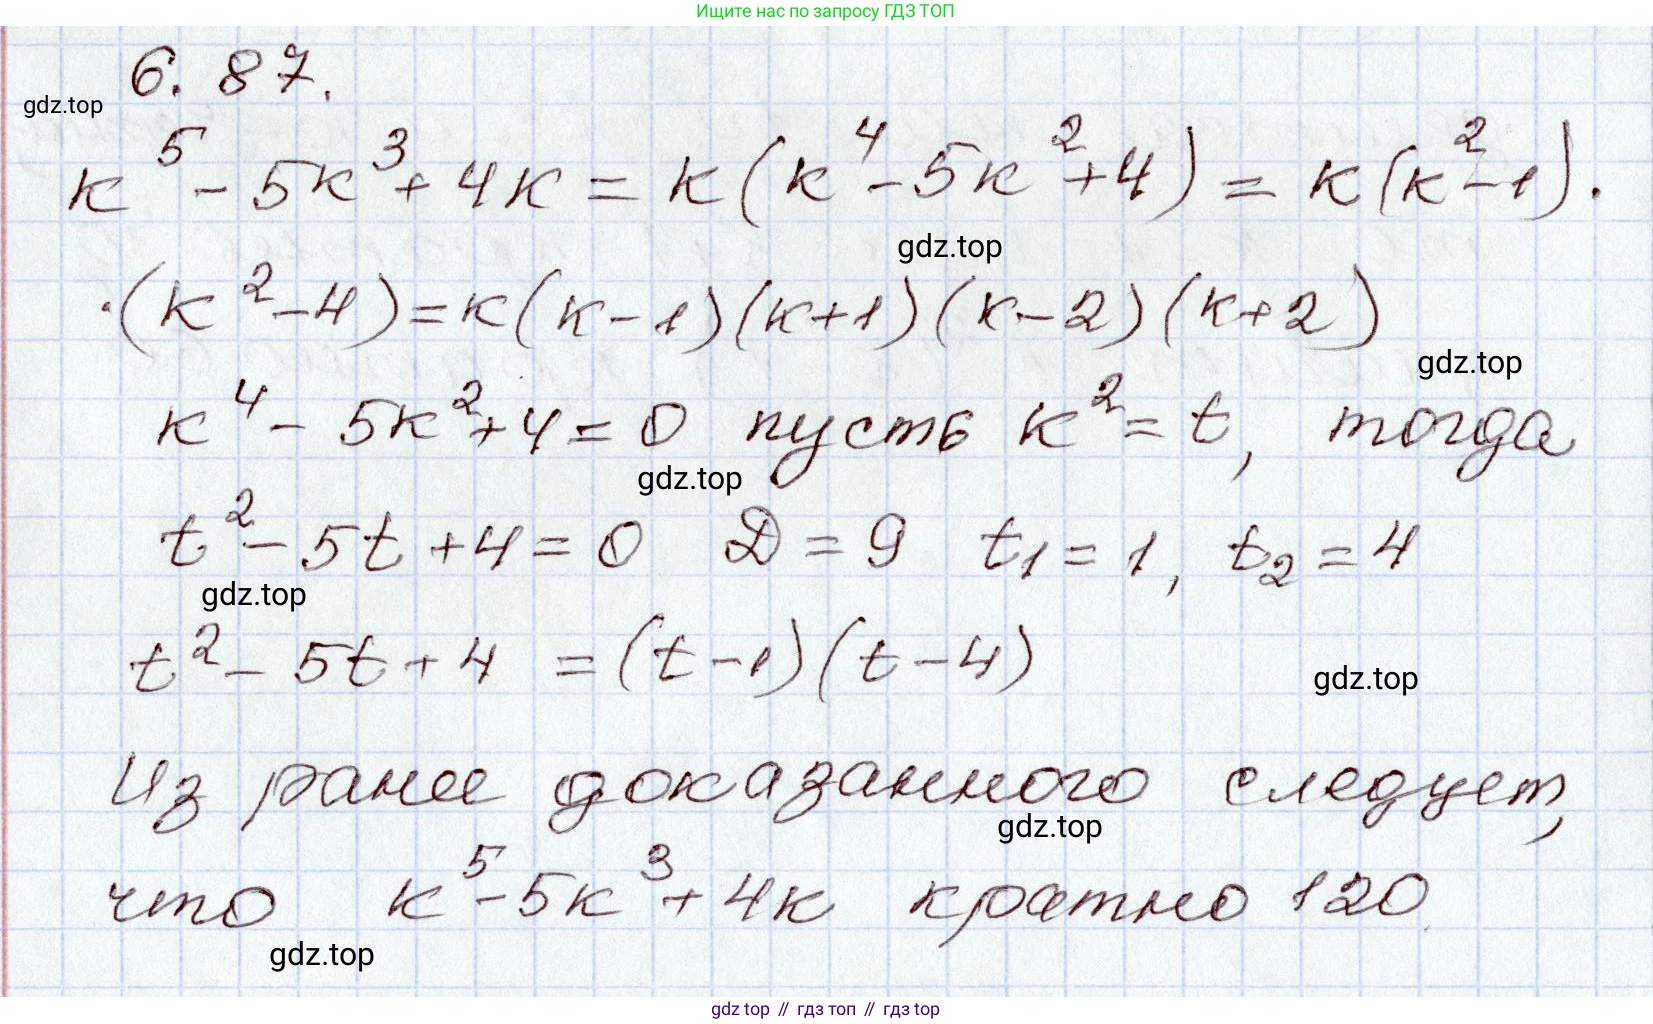 Ищите нас по запросу ГДЗ ТОП
6. 87.
gdz.top
к⁵ - 5к³ + 4к = к(к⁴ - 5к² + 4) = к(к² - 1) ·
gdz.top
· (к² - 4) = к(к - 1)(к + 1)(к - 2)(к + 2)
gdz.top
к⁴ - 5к² + 4 = 0 пусть к² = t, тогда
gdz.top
t² - 5t + 4 = 0 D = 9 t₁ = 1, t₂ = 4
gdz.top
t² - 5t + 4 = (t - 1)(t - 4)
gdz.top
Из ранее доказанного следует,
gdz.top
что к⁵ - 5к³ + 4к кратно 120
gdz.top
gdz top // гдз топ // гдз top